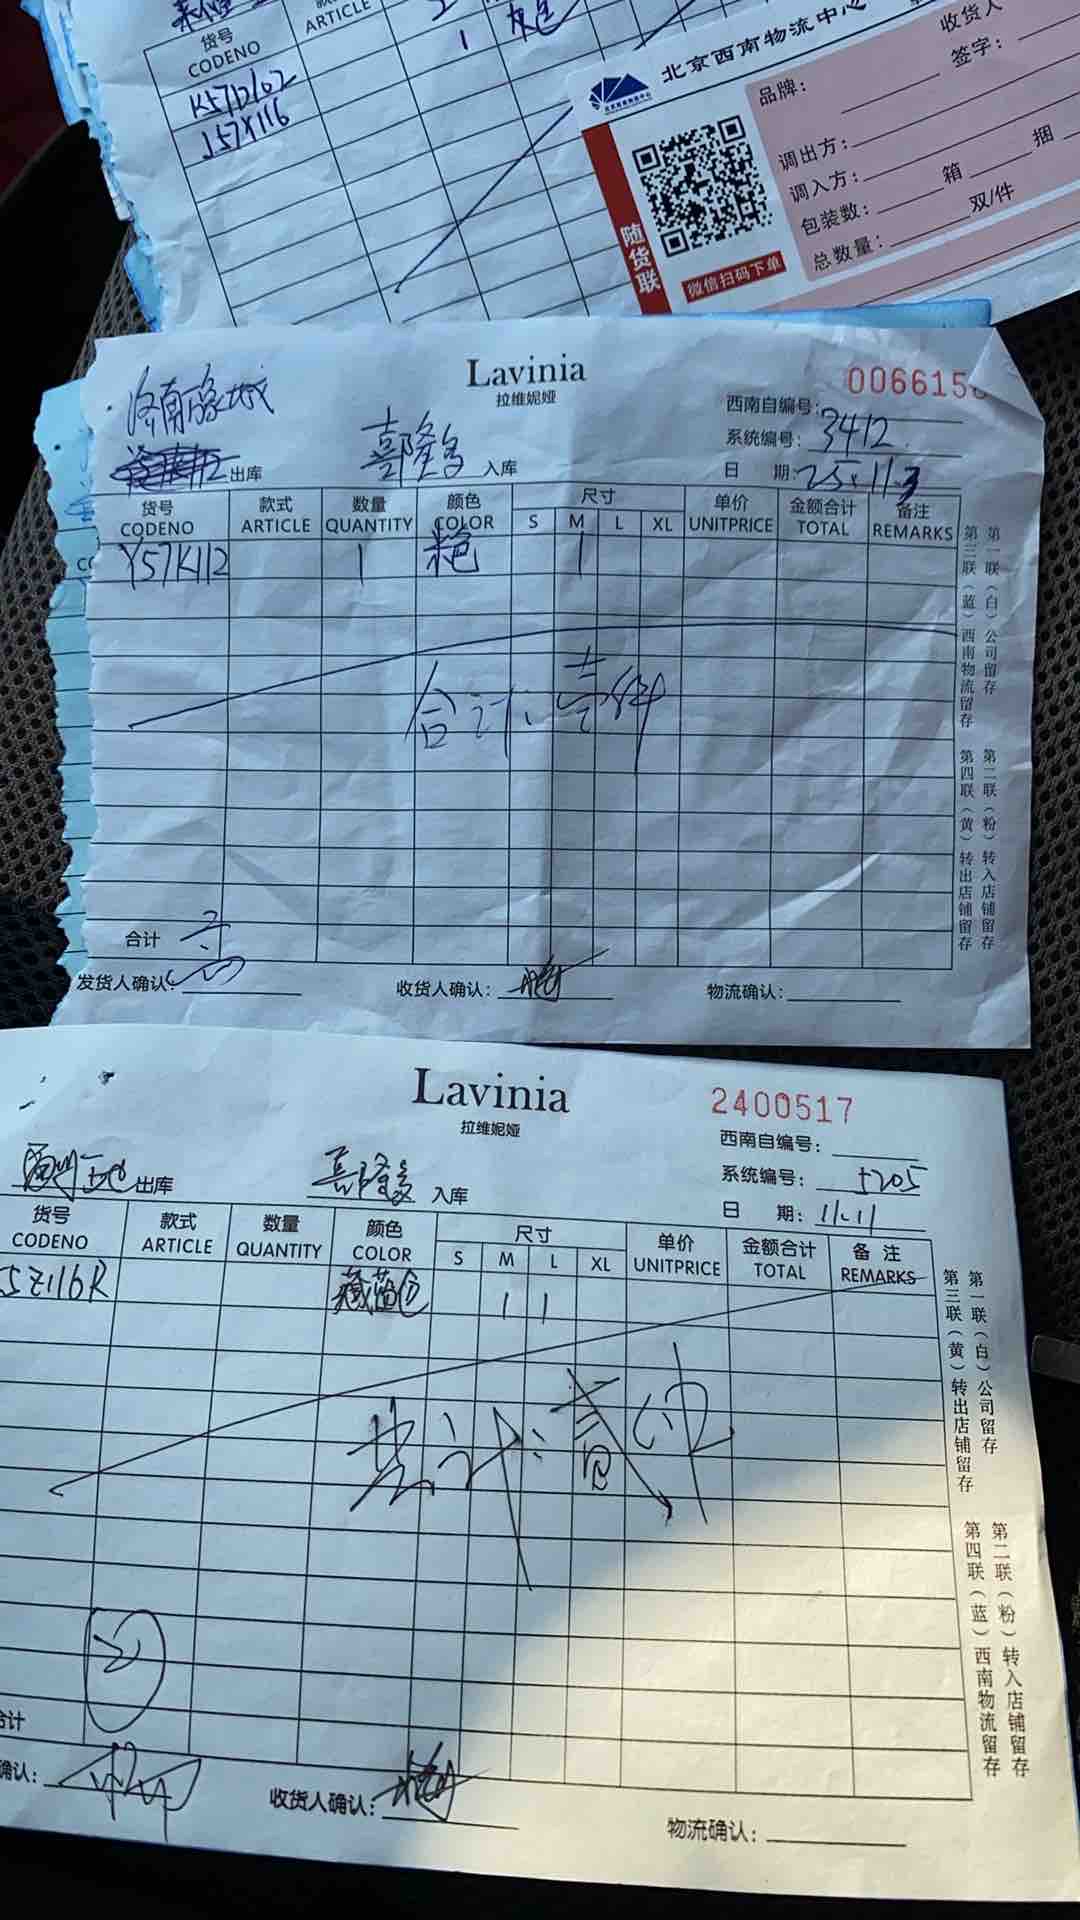 货号
CODENO
ARTICLE
1
K57D162
J57X116
北京西南物流中心
收货人
签字:
品牌:
调出方:
调入方: 箱 捆
包装数: 双/件
总数量:
随货联
微信扫码下单
Lavinia
拉维妮娅
006615
西南自编号:
系统编号: 3412
出库 喜隆多 入库 日 期: 25.11.3
货号 款式 数量 颜色 尺寸 单价 金额合计 备注
CODENO ARTICLE QUANTITY COLOR S M L XL UNITPRICE TOTAL REMARKS
Y57K112 1 米色 1
合计: 壹件
合计
发货人确认: 收货人确认: 物流确认:
第一联(白)公司留存 第二联(粉)转入店铺留存
第三联(蓝)西南物流留存 第四联(黄)转出店铺留存
Lavinia
拉维妮娅
2400517
西南自编号:
系统编号: 5205
出库 喜隆多 入库 日 期: 11.11
货号 款式 数量 颜色 尺寸 单价 金额合计 备注
CODENO ARTICLE QUANTITY COLOR S M L XL UNITPRICE TOTAL REMARKS
5Z116R 藏蓝色 1 1
共计: 贰件
合计
确认: 收货人确认: 物流确认:
第一联(白)公司留存 第二联(粉)转入店铺留存
第三联(黄)转出店铺留存 第四联(蓝)西南物流留存